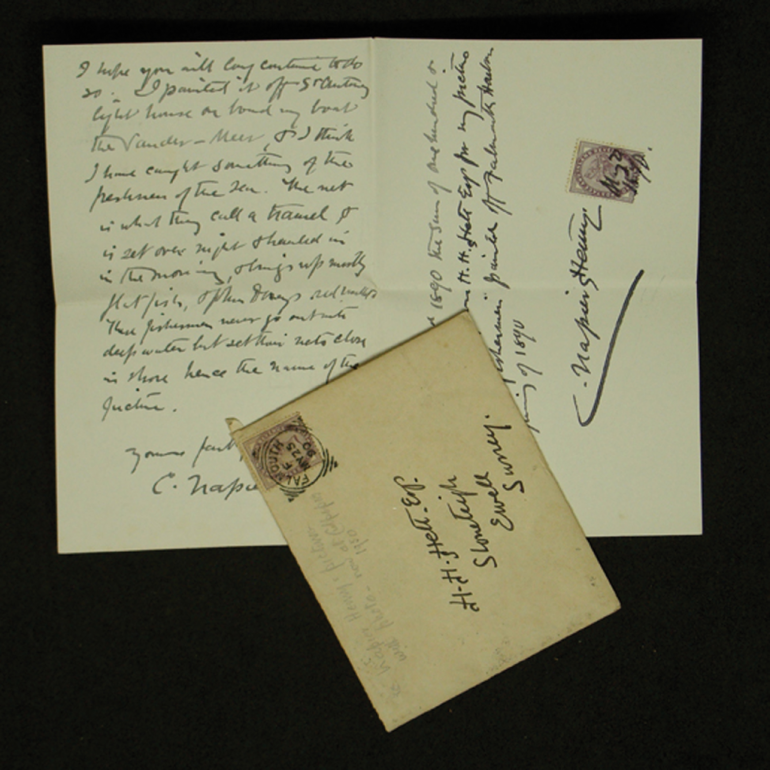 I hope you will long continue to do
so. I painted it off St Anthony
light house on board my boat
the Vander-Meer, & I think
I have caught something of the
freshness of the sea. The net
is what they call a tramel &
is set over night & hauled in
in the morning, & brings up mostly
flat fish, & often Dorys red mullet
These fishermen never go out into
deep water but set their nets close
in shore hence the name of the
picture.
yours faith
C. Napie
1890 the sum of one hundred
H. H. Hett Esq for my picture
fishermen painted off Falmouth Harbour
of 1890
C. Napier Hemy.
FALMOUTH
MY 25
90
H. H. Hett. Esq.
Stoneleigh
Ewell
Surrey.
Napier Hemy's picture
1950